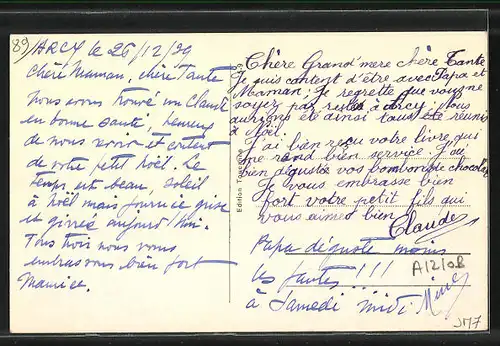 89
ARCY le 26/12/29
Chère Maman, chère Tante
Nous avons trouvé un Claude
en bonne santé, heureux
de nous voir et content
de votre petit Noël. Le
temps est beau, soleil
à Noël mais journée grise
et givrée aujourd'hui.
Tous trois nous vous
embrassons bien fort
Maurice.
Edition
Chère Grand'mère chère Tante
Je suis content d'être avec Papa et
Maman. Je regrette que vous ne
soyez pas restés à Arcy. Nous
aurions été ainsi tous été réunis
à Noël.
J'ai bien reçu votre livre qui
me rend bien service. J'ai
bien dégusté vos bombons de chocolat
Je vous embrasse bien
fort votre petit fils qui
vous aimes bien
Claude
Papa déguste moins
les fautes!!!
à Samedi midi
A12108
JM7